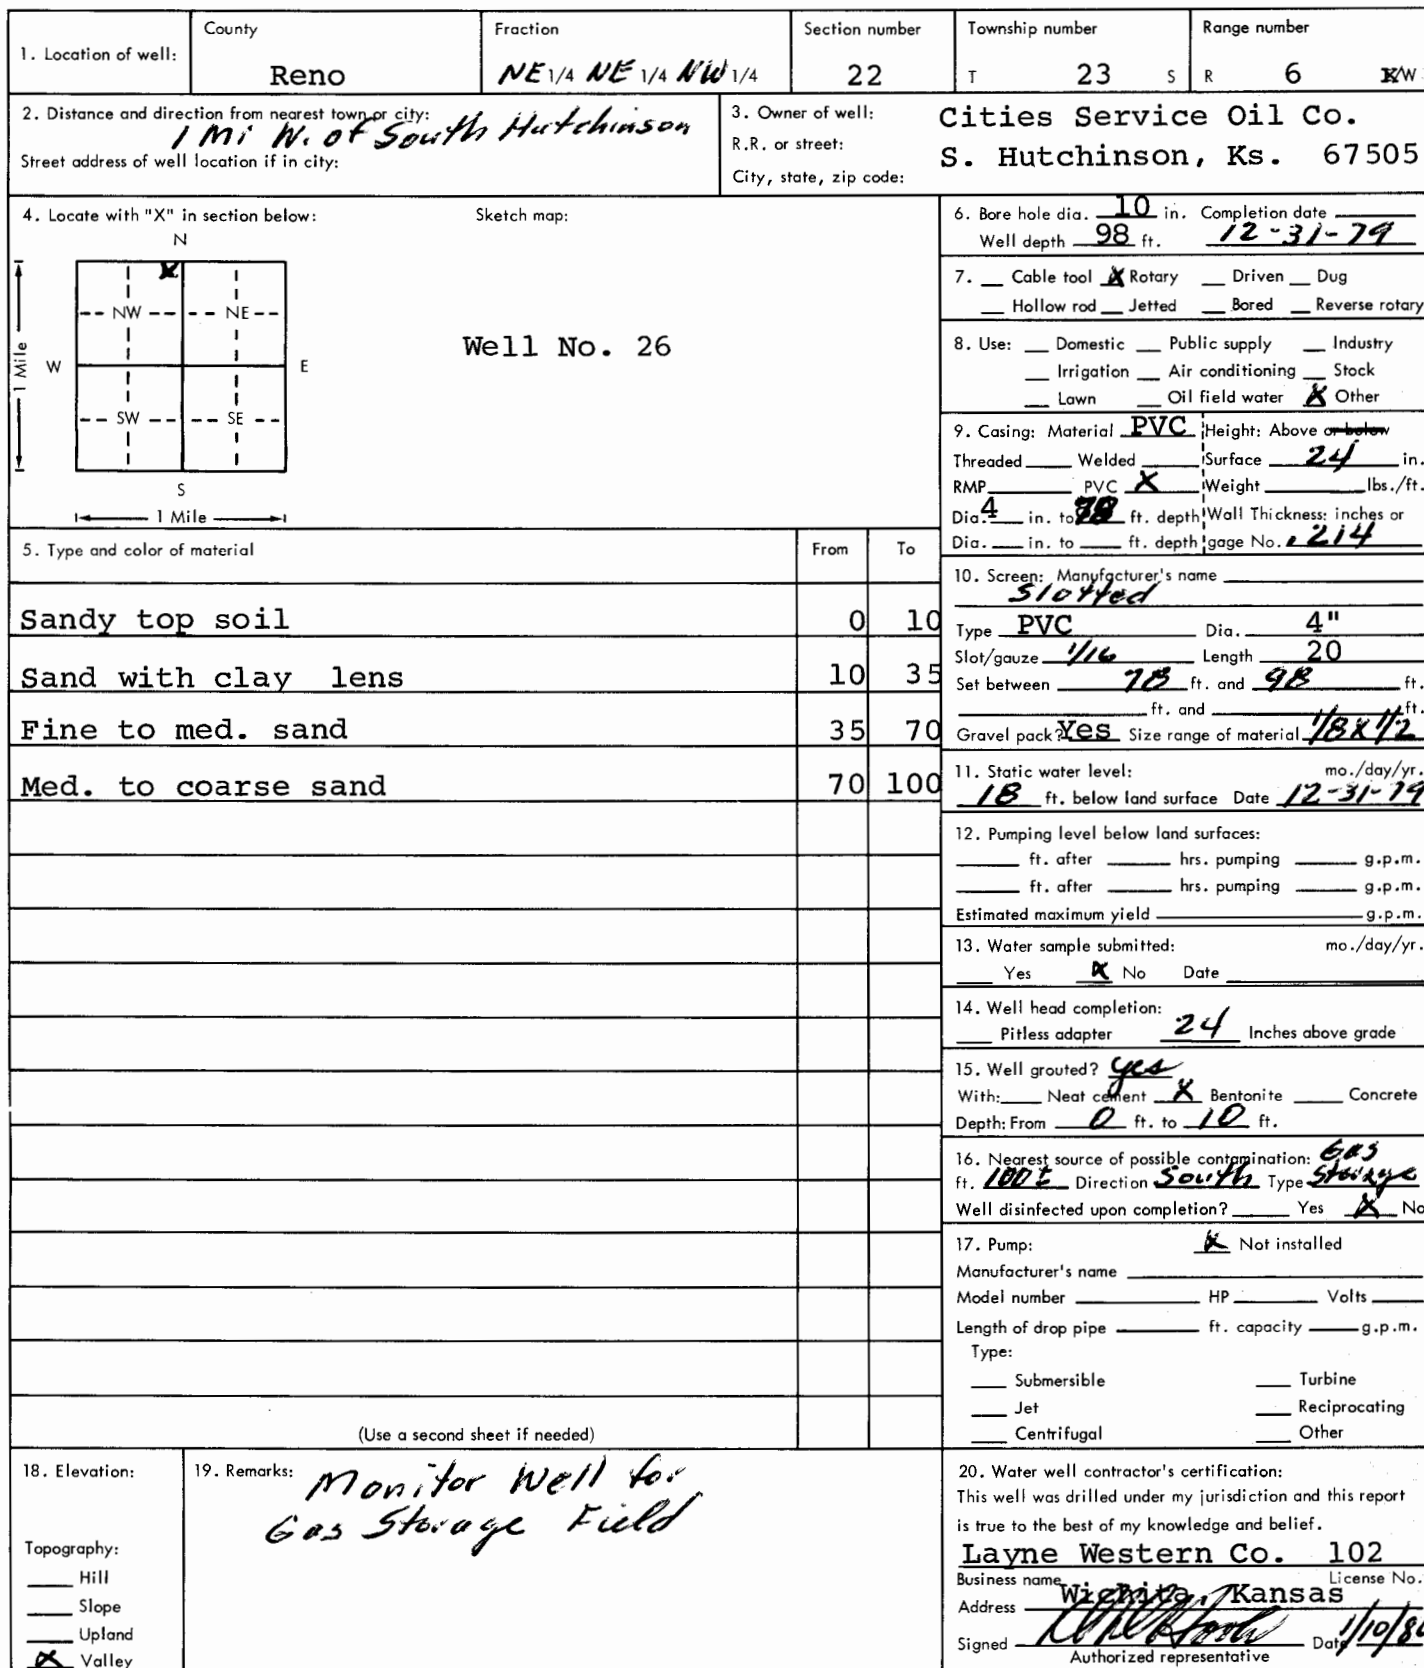 County Fraction Section number Township number Range number
1. Location of well: Reno NE 1/4 NE 1/4 NW 1/4 22 T 23 S R 6 E/W
2. Distance and direction from nearest town or city: 1 Mi W. of South Hutchinson
Street address of well location if in city:
3. Owner of well: Cities Service Oil Co.
R.R. or street:
City, state, zip code: S. Hutchinson, Ks. 67505
4. Locate with "X" in section below: Sketch map:
N
X
NW NE
W E
SW SE
S
1 Mile
1 Mile
Well No. 26
5. Type and color of material From To
Sandy top soil 0 10
Sand with clay lens 10 35
Fine to med. sand 35 70
Med. to coarse sand 70 100
(Use a second sheet if needed)
6. Bore hole dia. 10 in. Completion date
Well depth 98 ft. 12-31-79
7. Cable tool X Rotary Driven Dug
Hollow rod Jetted Bored Reverse rotary
8. Use: Domestic Public supply Industry
Irrigation Air conditioning Stock
Lawn Oil field water X Other
9. Casing: Material PVC Height: Above or below
Threaded Welded Surface 24 in.
RMP PVC X Weight lbs./ft.
Dia. 4 in. to 78 ft. depth Wall Thickness: inches or
Dia. in. to ft. depth gage No. .214
10. Screen: Manufacturer's name
Slotted
Type PVC Dia. 4"
Slot/gauze 1/16 Length 20
Set between 78 ft. and 98 ft.
ft. and ft.
Gravel pack? Yes Size range of material 1/8 x 1/2
11. Static water level: mo./day/yr.
18 ft. below land surface Date 12-31-79
12. Pumping level below land surfaces:
ft. after hrs. pumping g.p.m.
ft. after hrs. pumping g.p.m.
Estimated maximum yield g.p.m.
13. Water sample submitted: mo./day/yr.
Yes X No Date
14. Well head completion:
Pitless adapter 24 Inches above grade
15. Well grouted? yes
With: Neat cement X Bentonite Concrete
Depth: From 0 ft. to 10 ft.
16. Nearest source of possible contamination: Gas
ft. 100 ± Direction South Type Storage
Well disinfected upon completion? Yes X No
17. Pump: X Not installed
Manufacturer's name
Model number HP Volts
Length of drop pipe ft. capacity g.p.m.
Type:
Submersible Turbine
Jet Reciprocating
Centrifugal Other
18. Elevation:
Topography:
Hill
Slope
Upland
X Valley
19. Remarks: Monitor Well for
Gas Storage Field
20. Water well contractor's certification:
This well was drilled under my jurisdiction and this report
is true to the best of my knowledge and belief.
Layne Western Co. 102
Business name License No.
Address Wichita, Kansas
Signed Date 1/10/80
Authorized representative